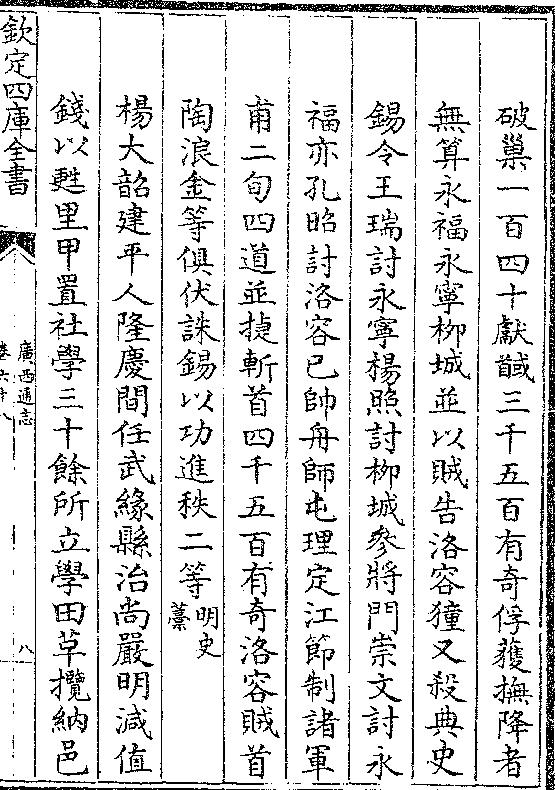 破巢一百四十獻馘三千五百有奇俘獲撫降者
無算永福永寧柳城並以賊告洛容獞又殺典史
錫令王瑞討永寧楊照討柳城參將門崇文討永
福亦孔昭討洛容已帥舟師屯理定江節制諸軍
甫二旬四道並捷斬首四千五百有奇洛容賊首
陶浪金等俱伏誅錫以功進秩二等明史藁
楊大韶建平人隆慶間任武緣縣治尚嚴明減值
錢以甦里甲置社學三十餘所立學田草攬納邑
欽定四庫全書
廣西通志
卷六十八
八